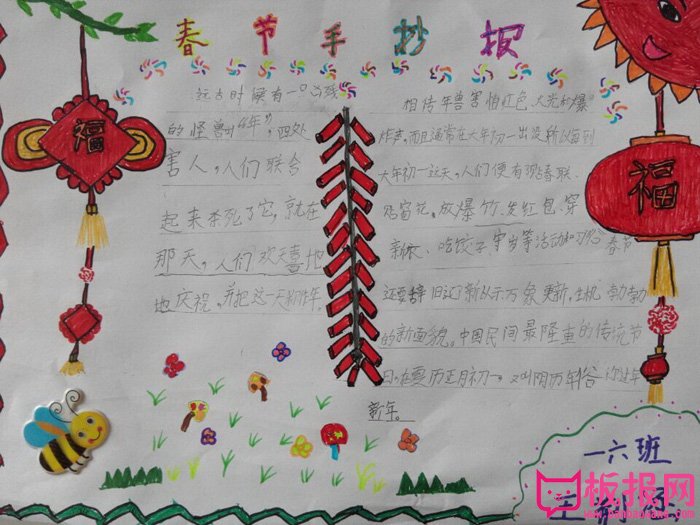 春节手抄报
福
远古时候有一只凶残
的怪兽叫"年"，四处
害人，人们联合
起来杀死了它，就在
那天，人们欢天喜地
地庆祝，并把这一天叫作年。
相传年兽害怕红色、火光和爆
炸声，而且通常在大年初一出没，所以每到
大年初一这天，人们便有
贴窗花、放爆竹、发红包、穿
新衣、吃饺子、守岁等活动和习俗春节
还要辞旧迎新以示万象更新，生机勃勃
的新面貌。中国民间最隆重的传统节
日，在农历正月初一，又叫阴历年俗
新年。
福
一六班
板报网